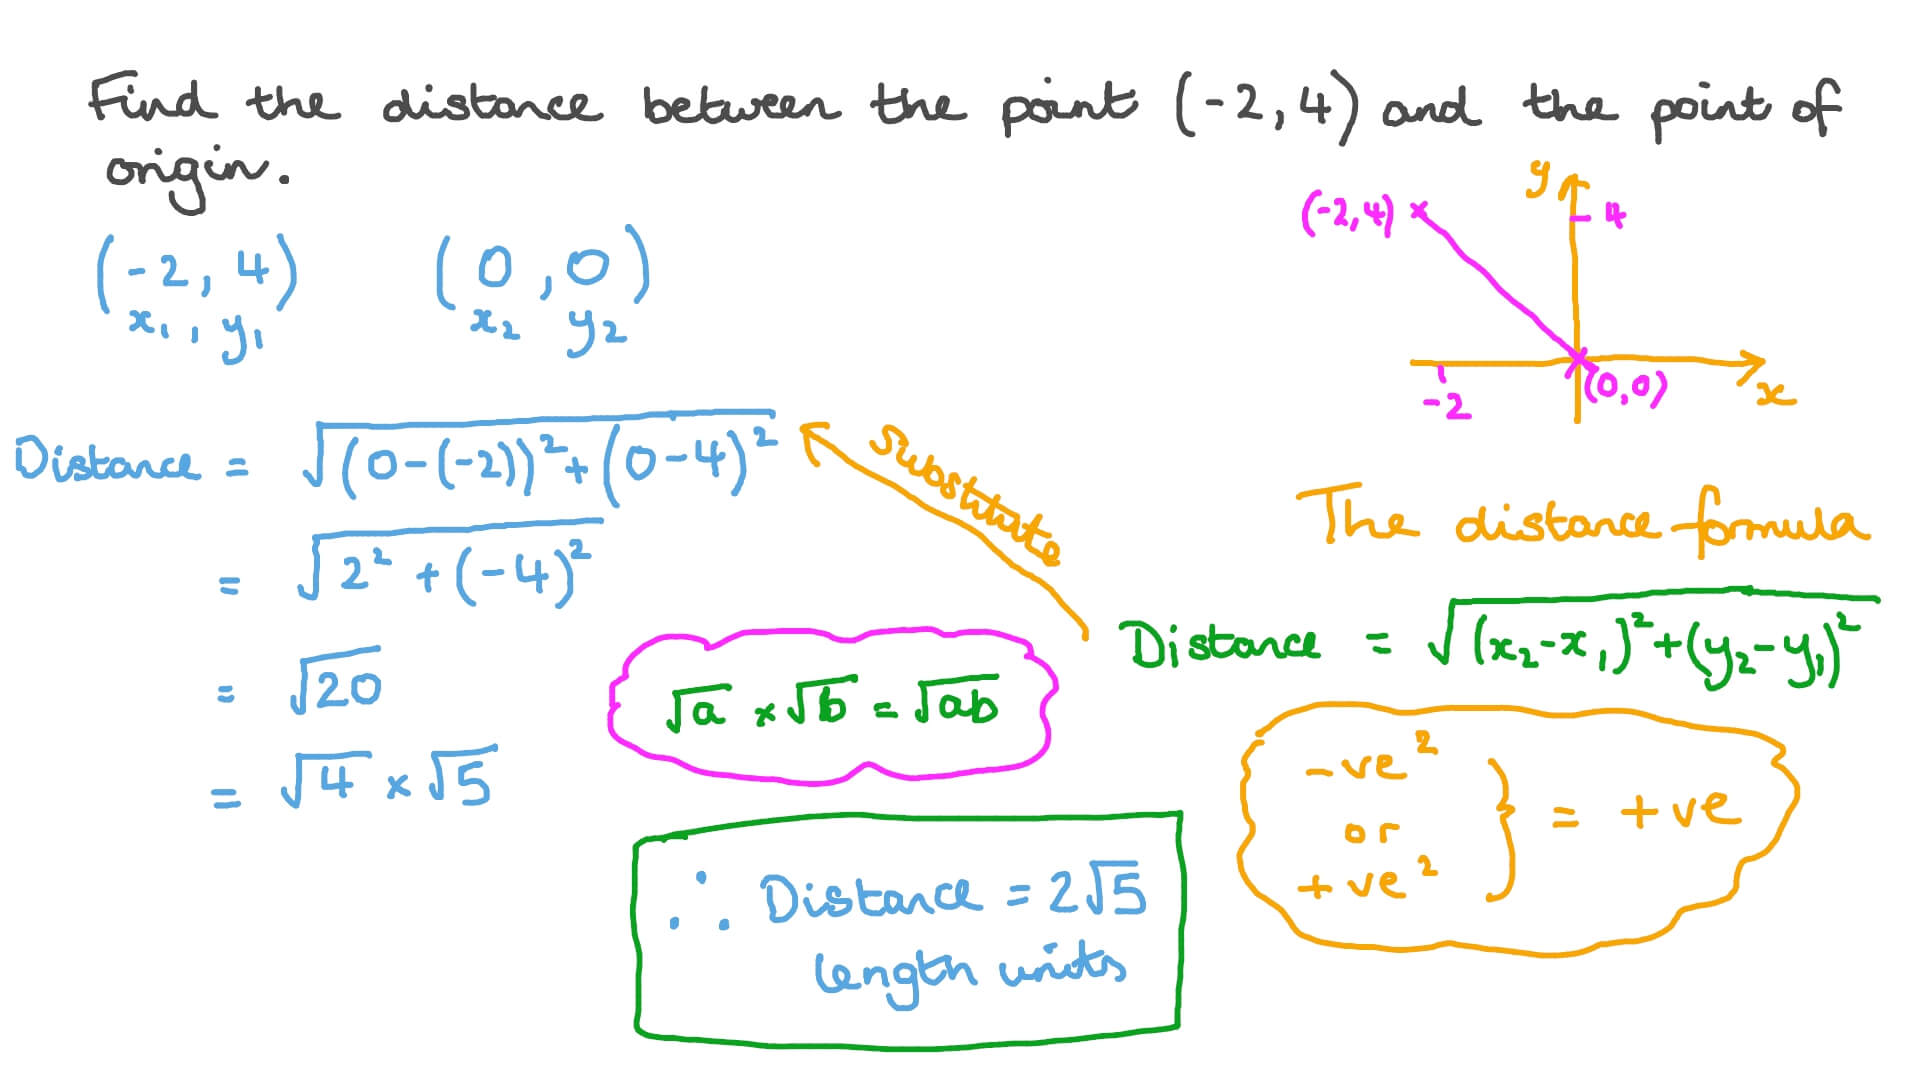 Find the distance between the point (-2,4) and the point of
origin.
y
(-2,4) × 4
(-2, 4) (0,0)
x₁, y₁ x₂ y₂
-2 (0,0) x
Distance = √((0-(-2))²+(0-4)²)
Substitute
The distance formula
= √(2²+(-4)²)
Distance = √((x₂-x₁)²+(y₂-y₁)²)
= √20
√a × √b = √ab
= √4 × √5
-ve²
or
+ve²
} = +ve
∴ Distance = 2√5
length units